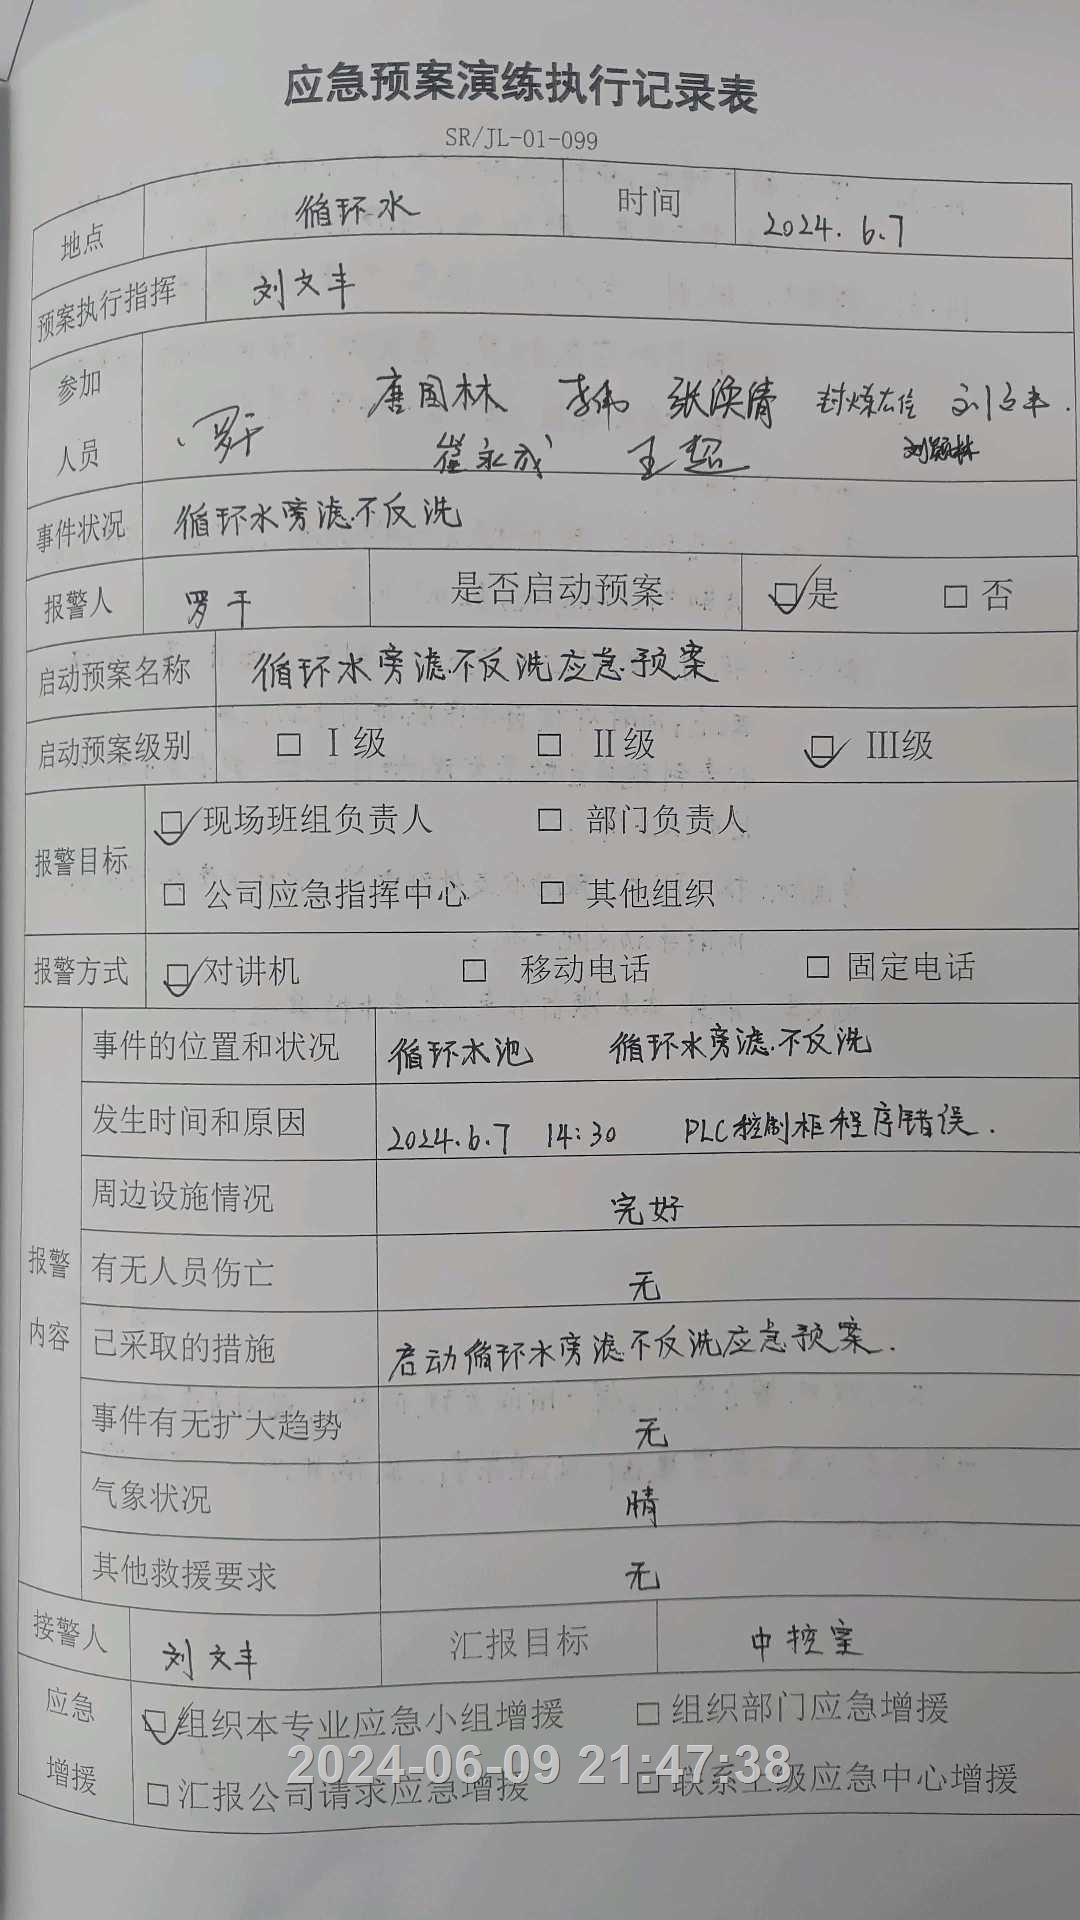 应急预案演练执行记录表
SR/JL-01-099
地点 循环水 时间 2024. 6.7
预案执行指挥 刘文丰
参加人员 唐国林 李伟 张焕清 刘文丰.
罗干 崔永成 王超 刘颖林
事件状况 循环水旁滤不反洗
报警人 罗干 是否启动预案 ☑是 □ 否
启动预案名称 循环水旁滤不反洗应急预案
启动预案级别 □ Ⅰ级 □ Ⅱ级 ☑ Ⅲ级
报警目标 ☑现场班组负责人 □ 部门负责人
□ 公司应急指挥中心 □ 其他组织
报警方式 ☑对讲机 □ 移动电话 □ 固定电话
报警内容
事件的位置和状况 循环水池 循环水旁滤不反洗
发生时间和原因 2024.6.7 14:30 PLC控制柜程序错误.
周边设施情况 完好
有无人员伤亡 无
已采取的措施 启动循环水旁滤不反洗应急预案.
事件有无扩大趋势 无
气象状况 晴
其他救援要求 无
接警人 刘文丰 汇报目标 中控室
应急增援 ☑组织本专业应急小组增援 □ 组织部门应急增援
□ 汇报公司请求应急增援 □ 联系上级应急中心增援
2024-06-09 21:47:38